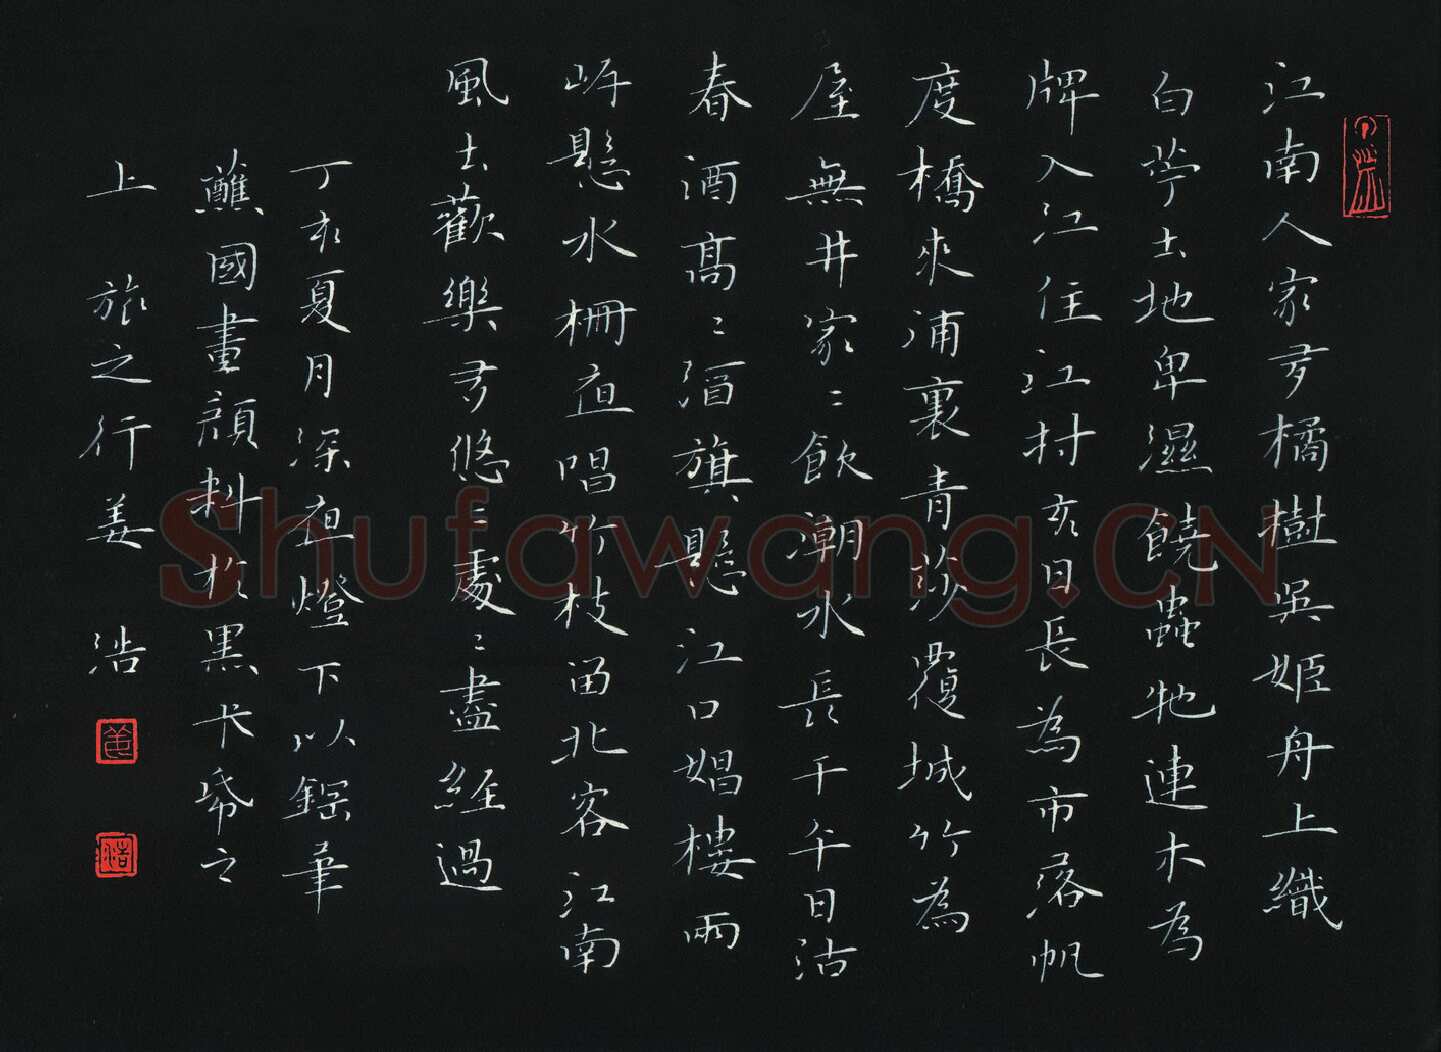 江南人家多橘樹吳姬舟上織
白苧土地卑濕饒蟲虵連木為
牌入江住江村亥日長為市落帆
度橋來浦裏青莎覆城竹為
屋無井家〻飲潮水長干午日沽
春酒高〻酒旗懸江口娼樓兩
岍懸水柵夜唱竹枝留北客江南
風土歡樂多悠〻處〻盡經過
丁亥夏月深夜燈下以鋼筆
蘸國畫顏料於黑卡紙之
上 旅之行姜 浩
Shufawang.CN